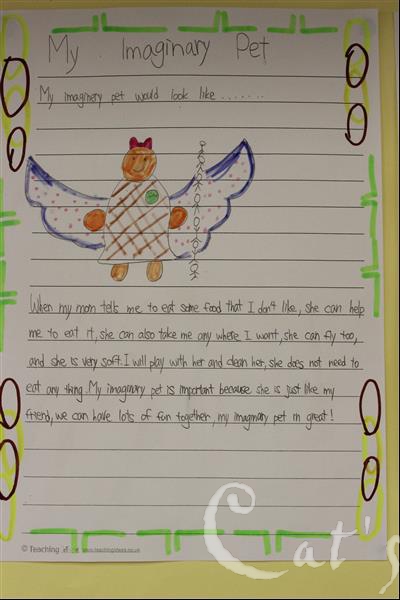 My Imaginary Pet
My imaginery pet would look like .......
When my mom tells me to eat some food that I don't like, she can help
me to eat it, she can also take me any where I want, she can fly too,
and she is very soft. I will play with her and clean her, she does not need to
eat any thing. My imaginary pet is important because she is just like my
friend, we can have lots of fun together, my imaginary pet is great!
© Teaching www.teachingideas.co.uk
Cat's